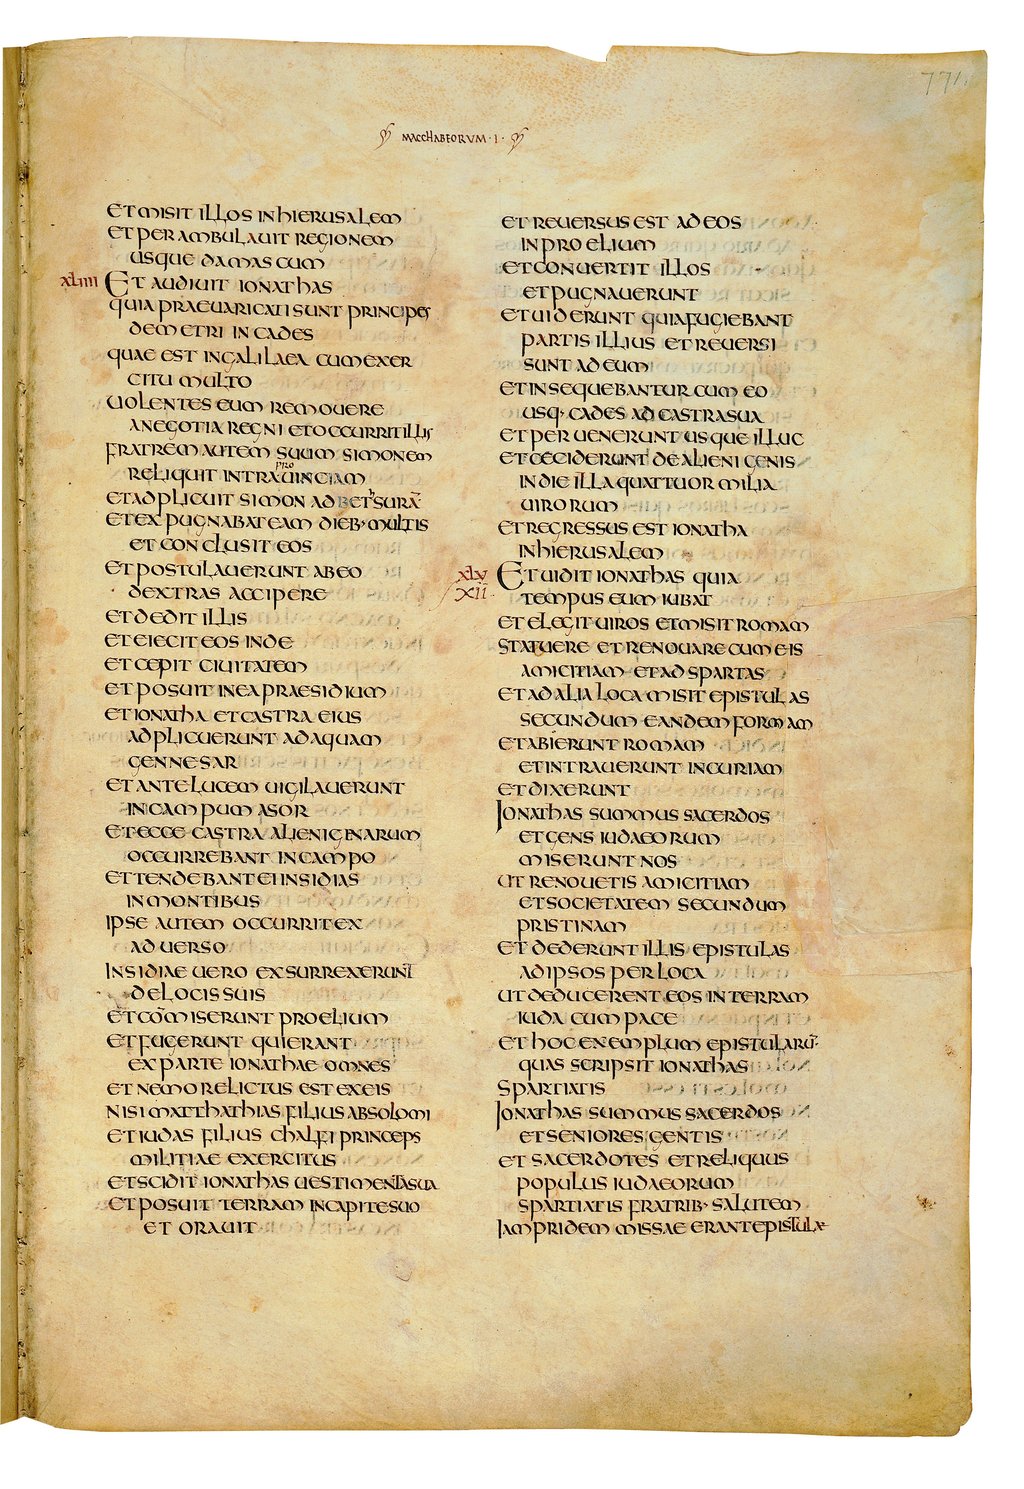 771
MACCHABEORUM · I ·
ET MISIT ILLOS IN HIERUSALEM
ET PERAMBULAUIT REGIONEM
USQUE DAMASCUM
XLIIII ET AUDIUIT IONATHAS
QUIA PRAEUARICATI SUNT PRINCIPES
DEMETRI IN CADES
QUAE EST IN GALILAEA CUM EXER
CITU MULTO
UOLENTES EUM REMOUERE
A NEGOTIA REGNI ET OCCURRIT ILLIS
FRATREM AUTEM SUUM SIMONEM
RELIQUIT INTRA PROUINCIAM
ET ADPLICUIT SIMON AD BETHSURĀ
ET EXPUGNABAT EAM DIEB· MULTIS
ET CONCLUSIT EOS
ET POSTULAUERUNT AB EO
DEXTRAS ACCIPERE
ET DEDIT ILLIS
ET EIECIT EOS INDE
ET CEPIT CIUITATEM
ET POSUIT IN EA PRAESIDIUM
ET IONATHA ET CASTRA EIUS
ADPLICUERUNT AD AQUAM
GENNESAR
ET ANTE LUCEM UIGILAUERUNT
IN CAMPUM ASOR
ET ECCE CASTRA ALIENIGINARUM
OCCURREBANT IN CAMPO
ET TENDEBANT EI INSIDIAS
IN MONTIBUS
IPSE AUTEM OCCURRIT EX
ADUERSO
INSIDIAE UERO EXSURREXERUNT
DE LOCIS SUIS
ET COMMISERUNT PROELIUM
ET FUGERUNT QUI ERANT
EX PARTE IONATHAE OMNES
ET NEMO RELICTUS EST EX EIS
NISI MATTHATHIAS FILIUS ABSOLOMI
ET IUDAS FILIUS CHALFI PRINCEPS
MILITIAE EXERCITUS
ET SCIDIT IONATHAS UESTIMENTA SUA
ET POSUIT TERRAM IN CAPITE SUO
ET ORAUIT
ET REUERSUS EST AD EOS
IN PROELIUM
ET CONUERTIT ILLOS
ET PUGNAUERUNT
ET UIDERUNT QUIA FUGIEBANT
PARTIS ILLIUS ET REUERSI
SUNT AD EUM
ET INSEQUEBANTUR CUM EO
USQ· CADES AD CASTRA SUA
ET PERUENERUNT USQUE ILLUC
ET CECIDERUNT DE ALIENIGENIS
IN DIE ILLA QUATTUOR MILIA
UIRORUM
ET REGRESSUS EST IONATHA
IN HIERUSALEM
XLV ET UIDIT IONATHAS QUIA
XII TEMPUS EUM IUBAT
ET ELEGIT UIROS ET MISIT ROMAM
STATUERE ET RENOUARE CUM EIS
AMICITIAM ET AD SPARTAS
ET AD ALIA LOCA MISIT EPISTULAS
SECUNDUM EANDEM FORMAM
ET ABIERUNT ROMAM
ET INTRAUERUNT IN CURIAM
ET DIXERUNT
IONATHAS SUMMUS SACERDOS
ET GENS IUDAEORUM
MISERUNT NOS
UT RENOUETIS AMICITIAM
ET SOCIETATEM SECUNDUM
PRISTINAM
ET DEDERUNT ILLIS EPISTULAS
AD IPSOS PER LOCA
UT DEDUCERENT EOS IN TERRAM
IUDA CUM PACE
ET HOC EXEMPLUM EPISTULARŪ·
QUAS SCRIPSIT IONATHAS
SPARTIATIS
IONATHAS SUMMUS SACERDOS
ET SENIORES GENTIS
ET SACERDOTES ET RELIQUUS
POPULUS IUDAEORUM
SPARTIATIS FRATRIB· SALUTEM
IAM PRIDEM MISSAE ERANT EPISTULAE